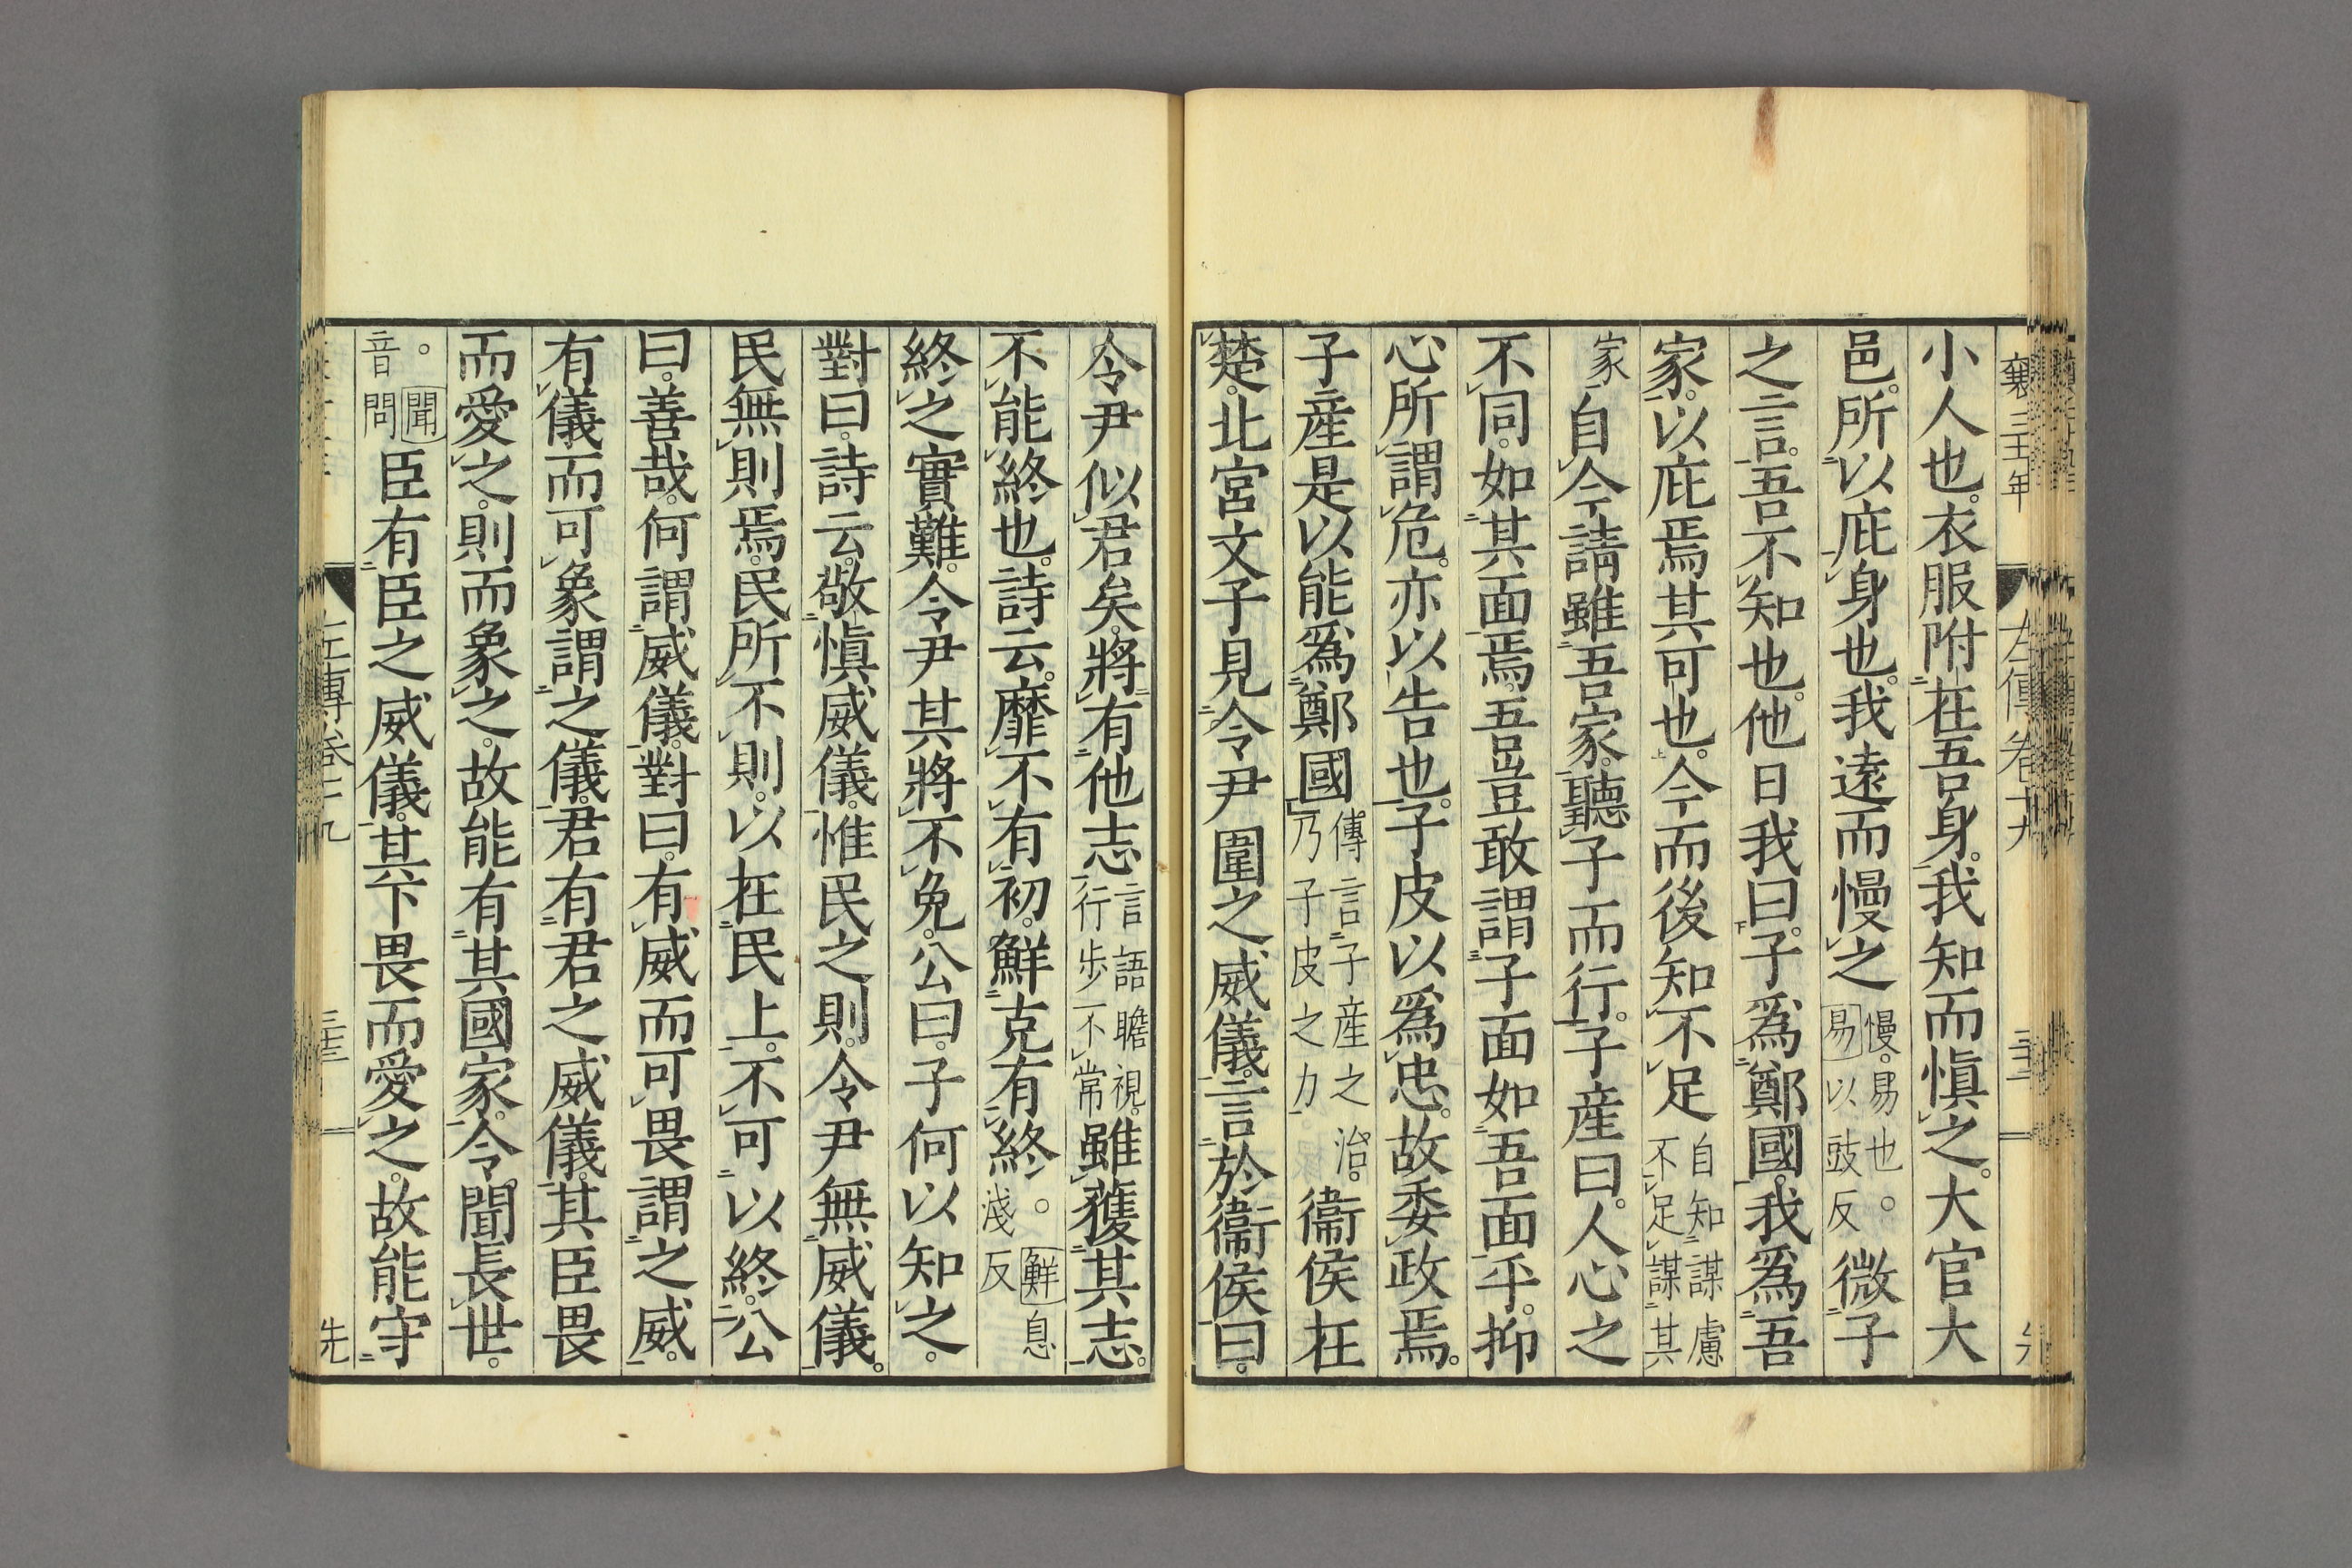 襄三十一年 左傳卷十九
小人也。衣服附在吾身。我知而愼之。大官大
邑。所以庇身也。我遠而慢之慢。易也。易以豉反微子
之言。吾不知也。他日我曰。子爲鄭國。我爲吾
家。以庇焉其可也。今而後知不足自知謀慮不足謀其
家自今請雖吾家。聽子而行。子產曰。人心之
不同。如其面焉。吾豈敢謂子面如吾面乎。抑
心所謂危。亦以告也。子皮以爲忠。故委政焉。
子產是以能爲鄭國傳言子產之治。乃子皮之力衞侯在
楚。北宮文子見令尹圍之威儀。言於衞侯曰。
令尹似君矣。將有他志言語瞻視。行步不常雖獲其志。
不能終也。詩云。靡不有初。鮮克有終。鮮息淺反
終之實難。令尹其將不免。公曰。子何以知之。
對曰。詩云。敬愼威儀。惟民之則。令尹無威儀。
民無則焉。民所不則。以在民上。不可以終。公
曰。善哉。何謂威儀。對曰。有威而可畏謂之威。
有儀而可象謂之儀。君有君之威儀。其臣畏
而愛之。則而象之。故能有其國家。令聞長世。
。聞音問臣有臣之威儀。其下畏而愛之。故能守
左傳卷十九 先